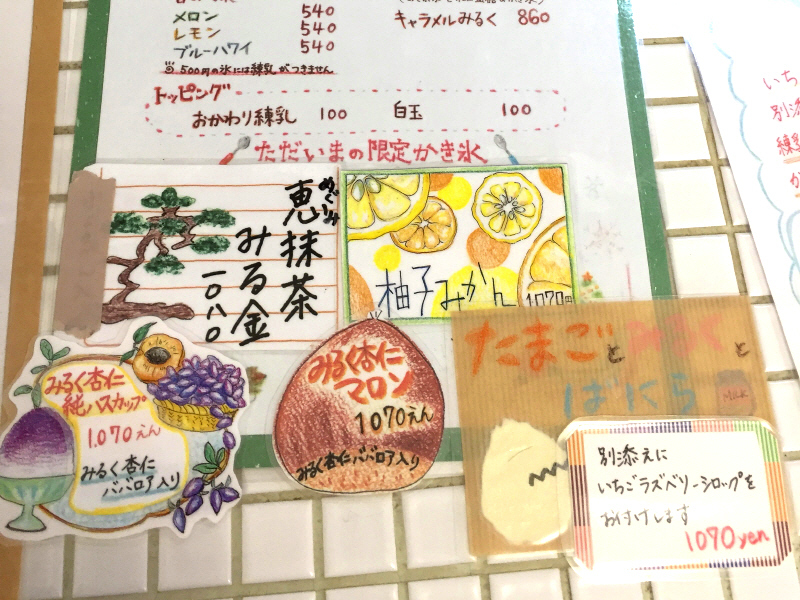 メロン 540
レモン 540
ブルーハワイ 540
500円の氷には練乳がつきません
キャラメルみるく 860
トッピング
おかわり練乳 100 白玉 100
ただいまの限定かき氷
めぐみ
恵抹茶
みる金
一〇八〇
柚子みかん 1070円
みるく杏仁
純ハスカップ
1.070えん
みるく杏仁
ババロア入り
みるく杏仁
マロン
1070えん
みるく杏仁ババロア入り
たまごとみるくと
ばにら
MILK
別添えに
いちごラズベリーシロップを
お付けします
1070yen
いち
別添
練乳
が